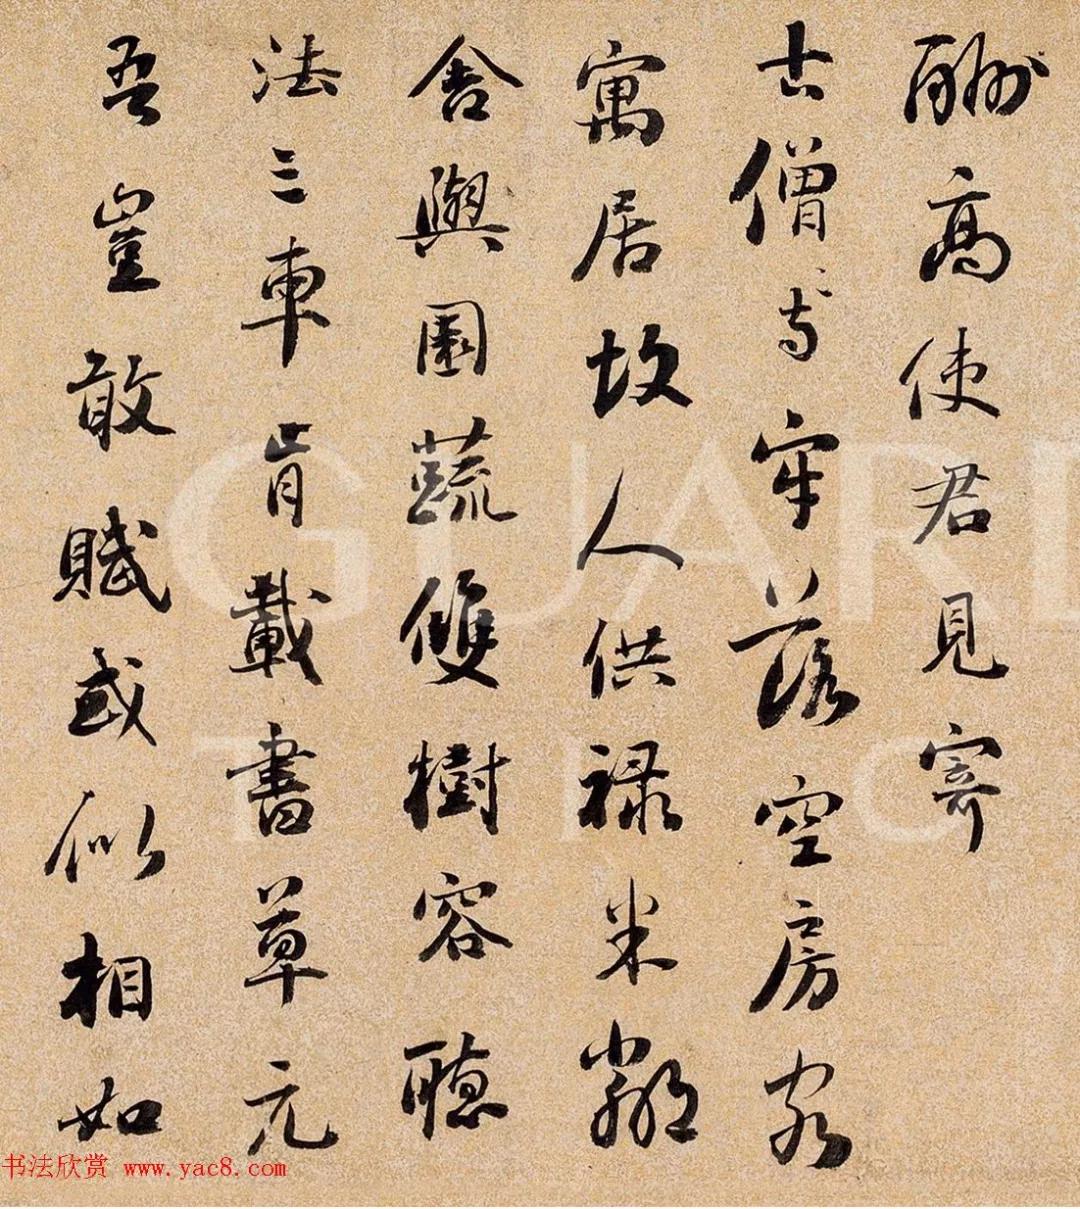 酬高使君見寄
古僧寺牢落空房客
寓居故人供禄米鄰
舍與園蔬雙樹容聽
法三車肯載書草元
吾豈敢賦或似相如
GUARD
书法欣赏 www.yac8.com